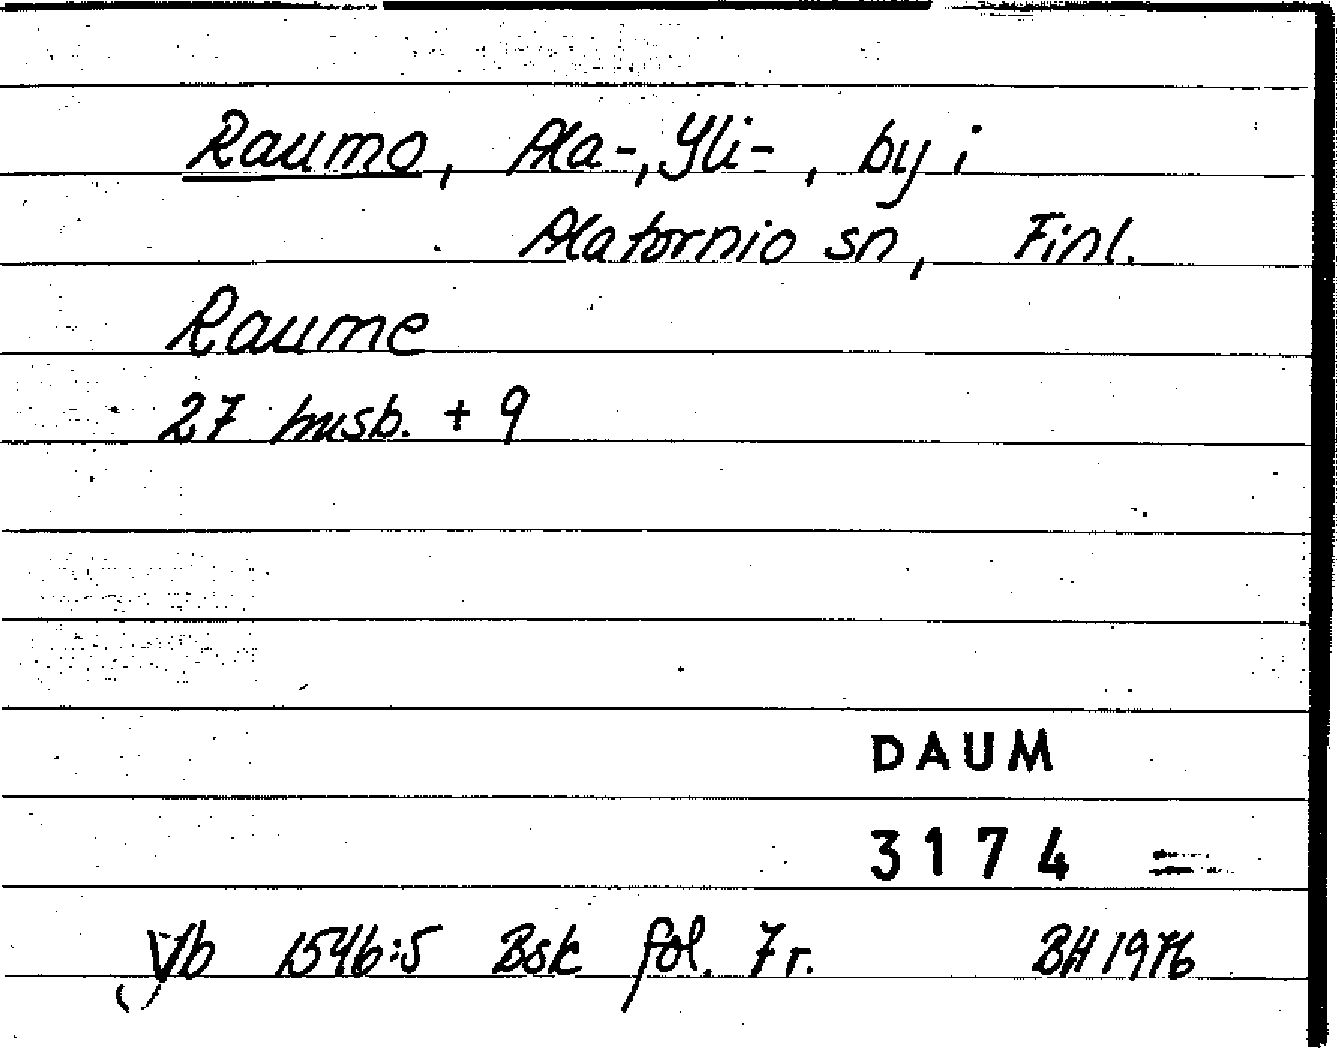 Raumo, Ala-, Yli-, by i
Alatornio sn, Finl.
Raume
27 husb. + 9
DAUM
3174
Vb 1546:5 Bsk fol. 7r. BH 1976